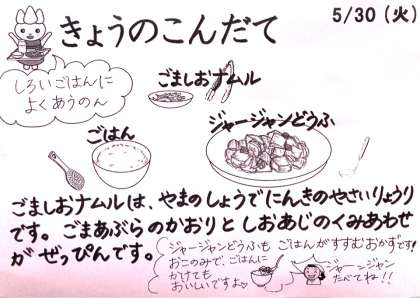 きょうのこんだて
5/30 (火)
しろいごはんに
よくあうのん
ごましおナムル
ごはん
ジャージャンどうふ
ごましおナムルは、やまのしょうでにんきのやさいりょうり
です。ごまあぶらのかおりとしおあじのくみあわせ
がぜっぴんです。
ジャージャンどうふも ごはんがすすむおかずです!
おこのみで、ごはんに
かけても
おいしいですよ♡
ジャージャン
たべてね!!